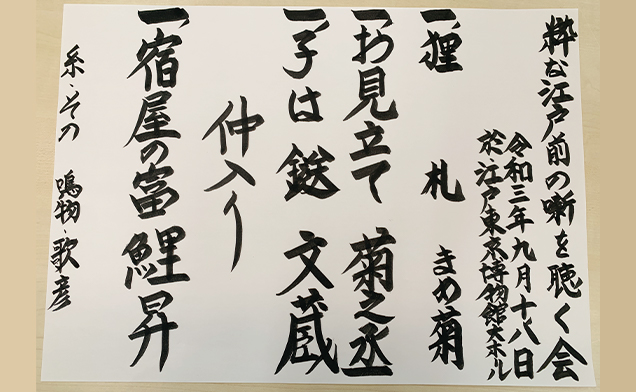 粋な江戸前の噺を聴く会
令和三年九月十八日
於・江戸東京博物館大ホール
一、狸札 まめ菊
一、お見立て 菊之丞
一、子は鎹 文蔵
仲入り
一、宿屋の富 鯉昇
糸・その 鳴物・歌彦